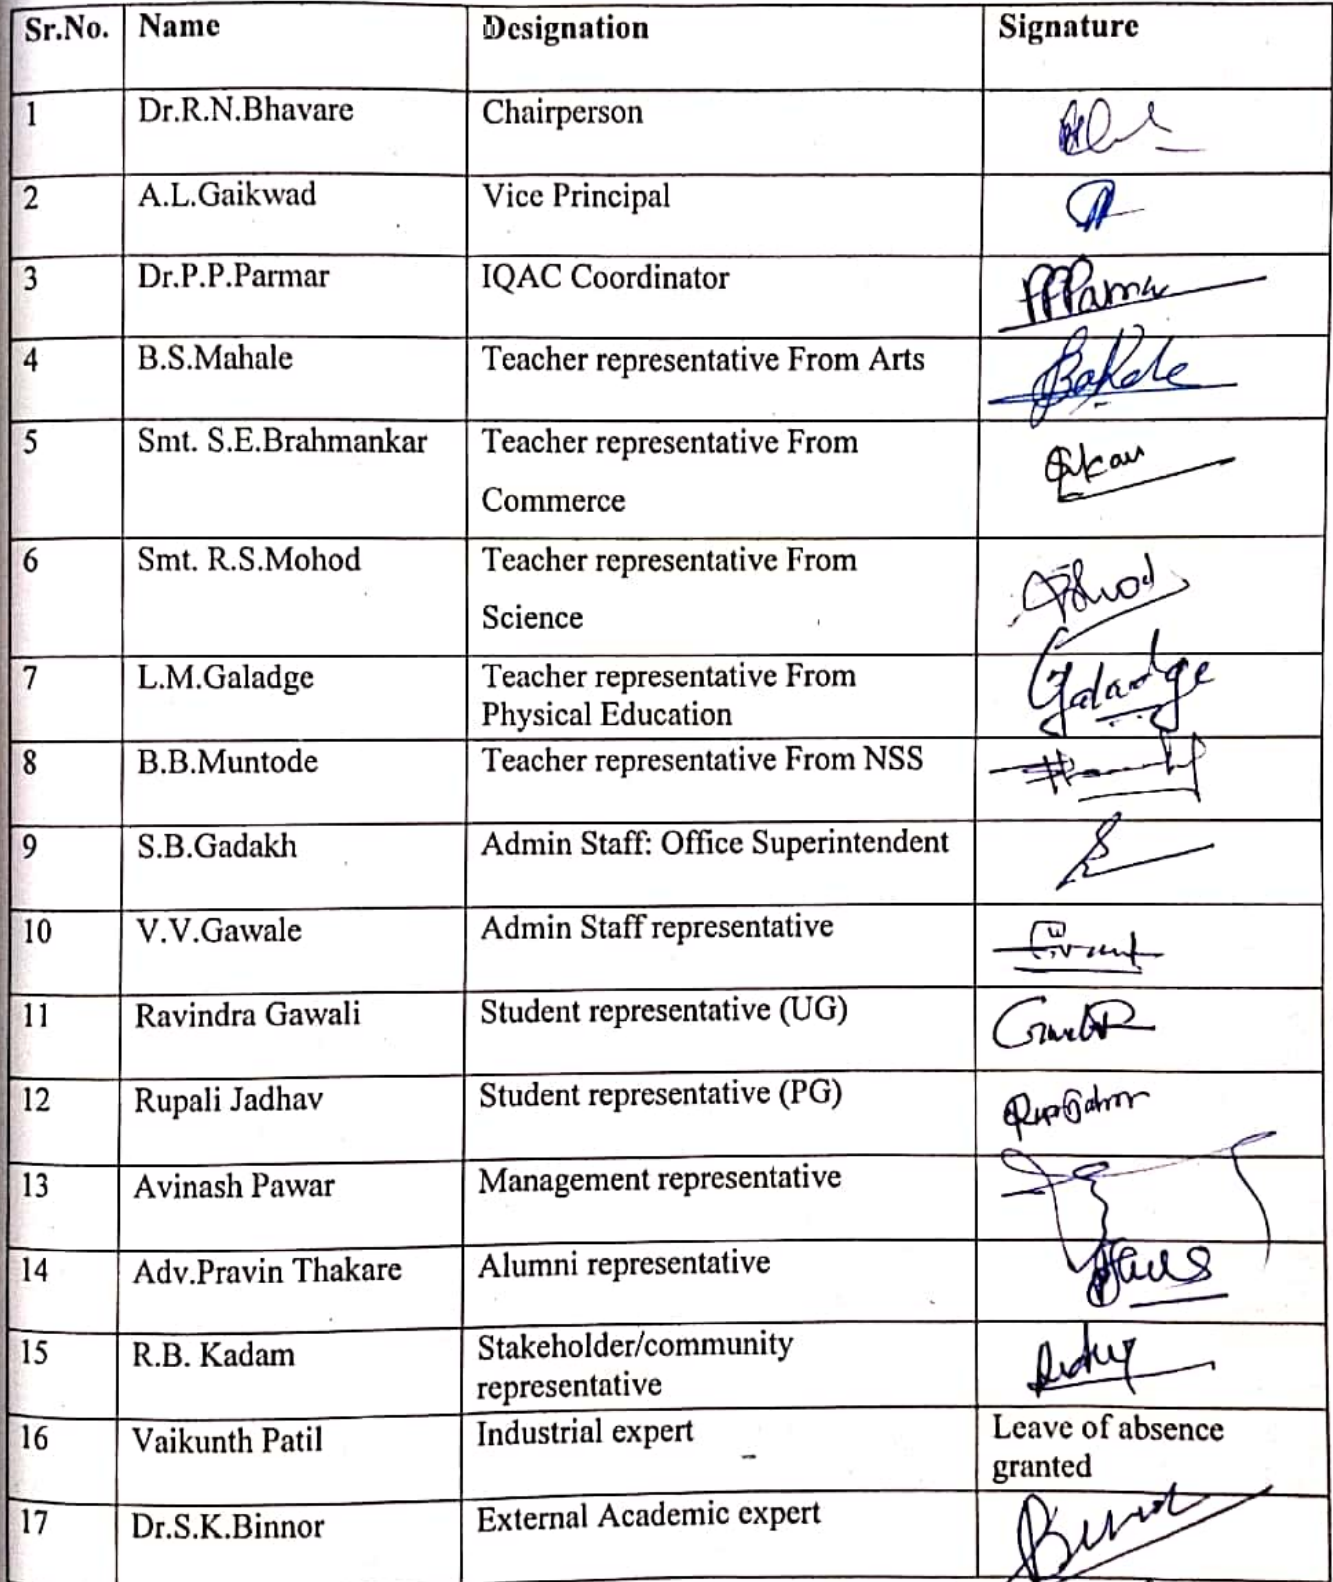 Sr.No. Name Designation Signature
1 Dr.R.N.Bhavare Chairperson
2 A.L.Gaikwad Vice Principal
3 Dr.P.P.Parmar IQAC Coordinator PPParmar
4 B.S.Mahale Teacher representative From Arts
5 Smt. S.E.Brahmankar Teacher representative From
Commerce
6 Smt. R.S.Mohod Teacher representative From
Science
7 L.M.Galadge Teacher representative From Galadge
Physical Education
8 B.B.Muntode Teacher representative From NSS
9 S.B.Gadakh Admin Staff: Office Superintendent
10 V.V.Gawale Admin Staff representative
11 Ravindra Gawali Student representative (UG)
12 Rupali Jadhav Student representative (PG)
13 Avinash Pawar Management representative
14 Adv.Pravin Thakare Alumni representative
15 R.B. Kadam Stakeholder/community
representative
16 Vaikunth Patil Industrial expert Leave of absence
granted
17 Dr.S.K.Binnor External Academic expert